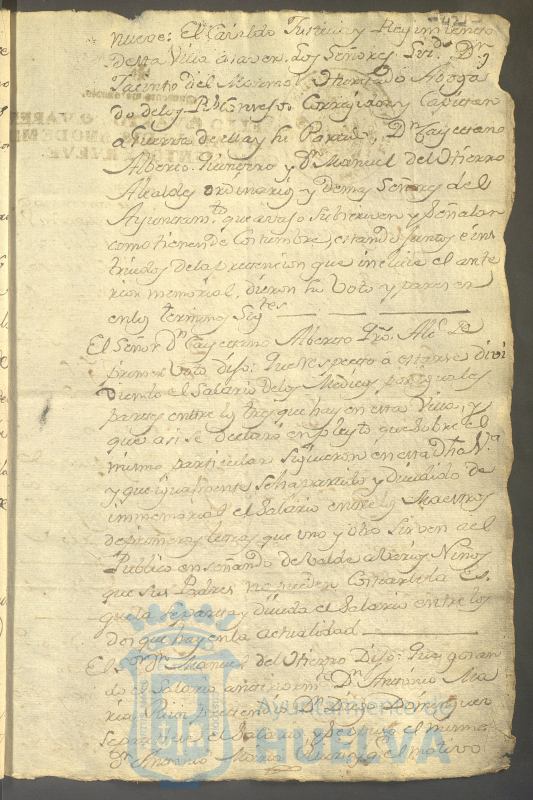 nueve: El Cavildo Justicia y Regimiento
desta Villa a saver: los Señores
Jacinto del Moreno Hurtado Aboga
do de los R.s Consejos Corregidor y Capitan
a Guerra de ella y su Partido, Dn Cayetano
Alberto Quintero y Dn Manuel del Hierro
Alcaldes ordinarios y demas Señores del
Ayuntam.to que avajo subscriven y Señalan
como tienen de Costumbre, estando juntos e ins
truidos de la pretencion que incluie el ante
rior memorial, dieron su Voto y parecer
en los terminos Sig.tes
El Señor Dn Cayetano Alberto Alc.e de
primer Voto Dijo: Que respecto a estarse divi
diendo el Salario de los Medicos por iguales
partes entre los tres que hay en esta Villa, y
que asi se declaró en pleyto que sobre el
mismo particular siguieron en esta Dha V.a
y que igualmente se ha partido y dividido de
immemorial el Salario entre los Maestros
de primeras letras, que uno y otro sirven a el
Publico enseñando de valde a varios Niños
que sus Padres no pueden Costearles la Es
quela se parta y divida el Salario entre los
dos que hay en la actualidad
El S.or Dn Manuel del Hierro Dijo: Que gozan
do el Salario Dn Antonio Ma
ria Dn Diego Dominguez
el Salario el mismo
Dn Antonio Maria el motivo
Ayuntamiento de
HUELVA